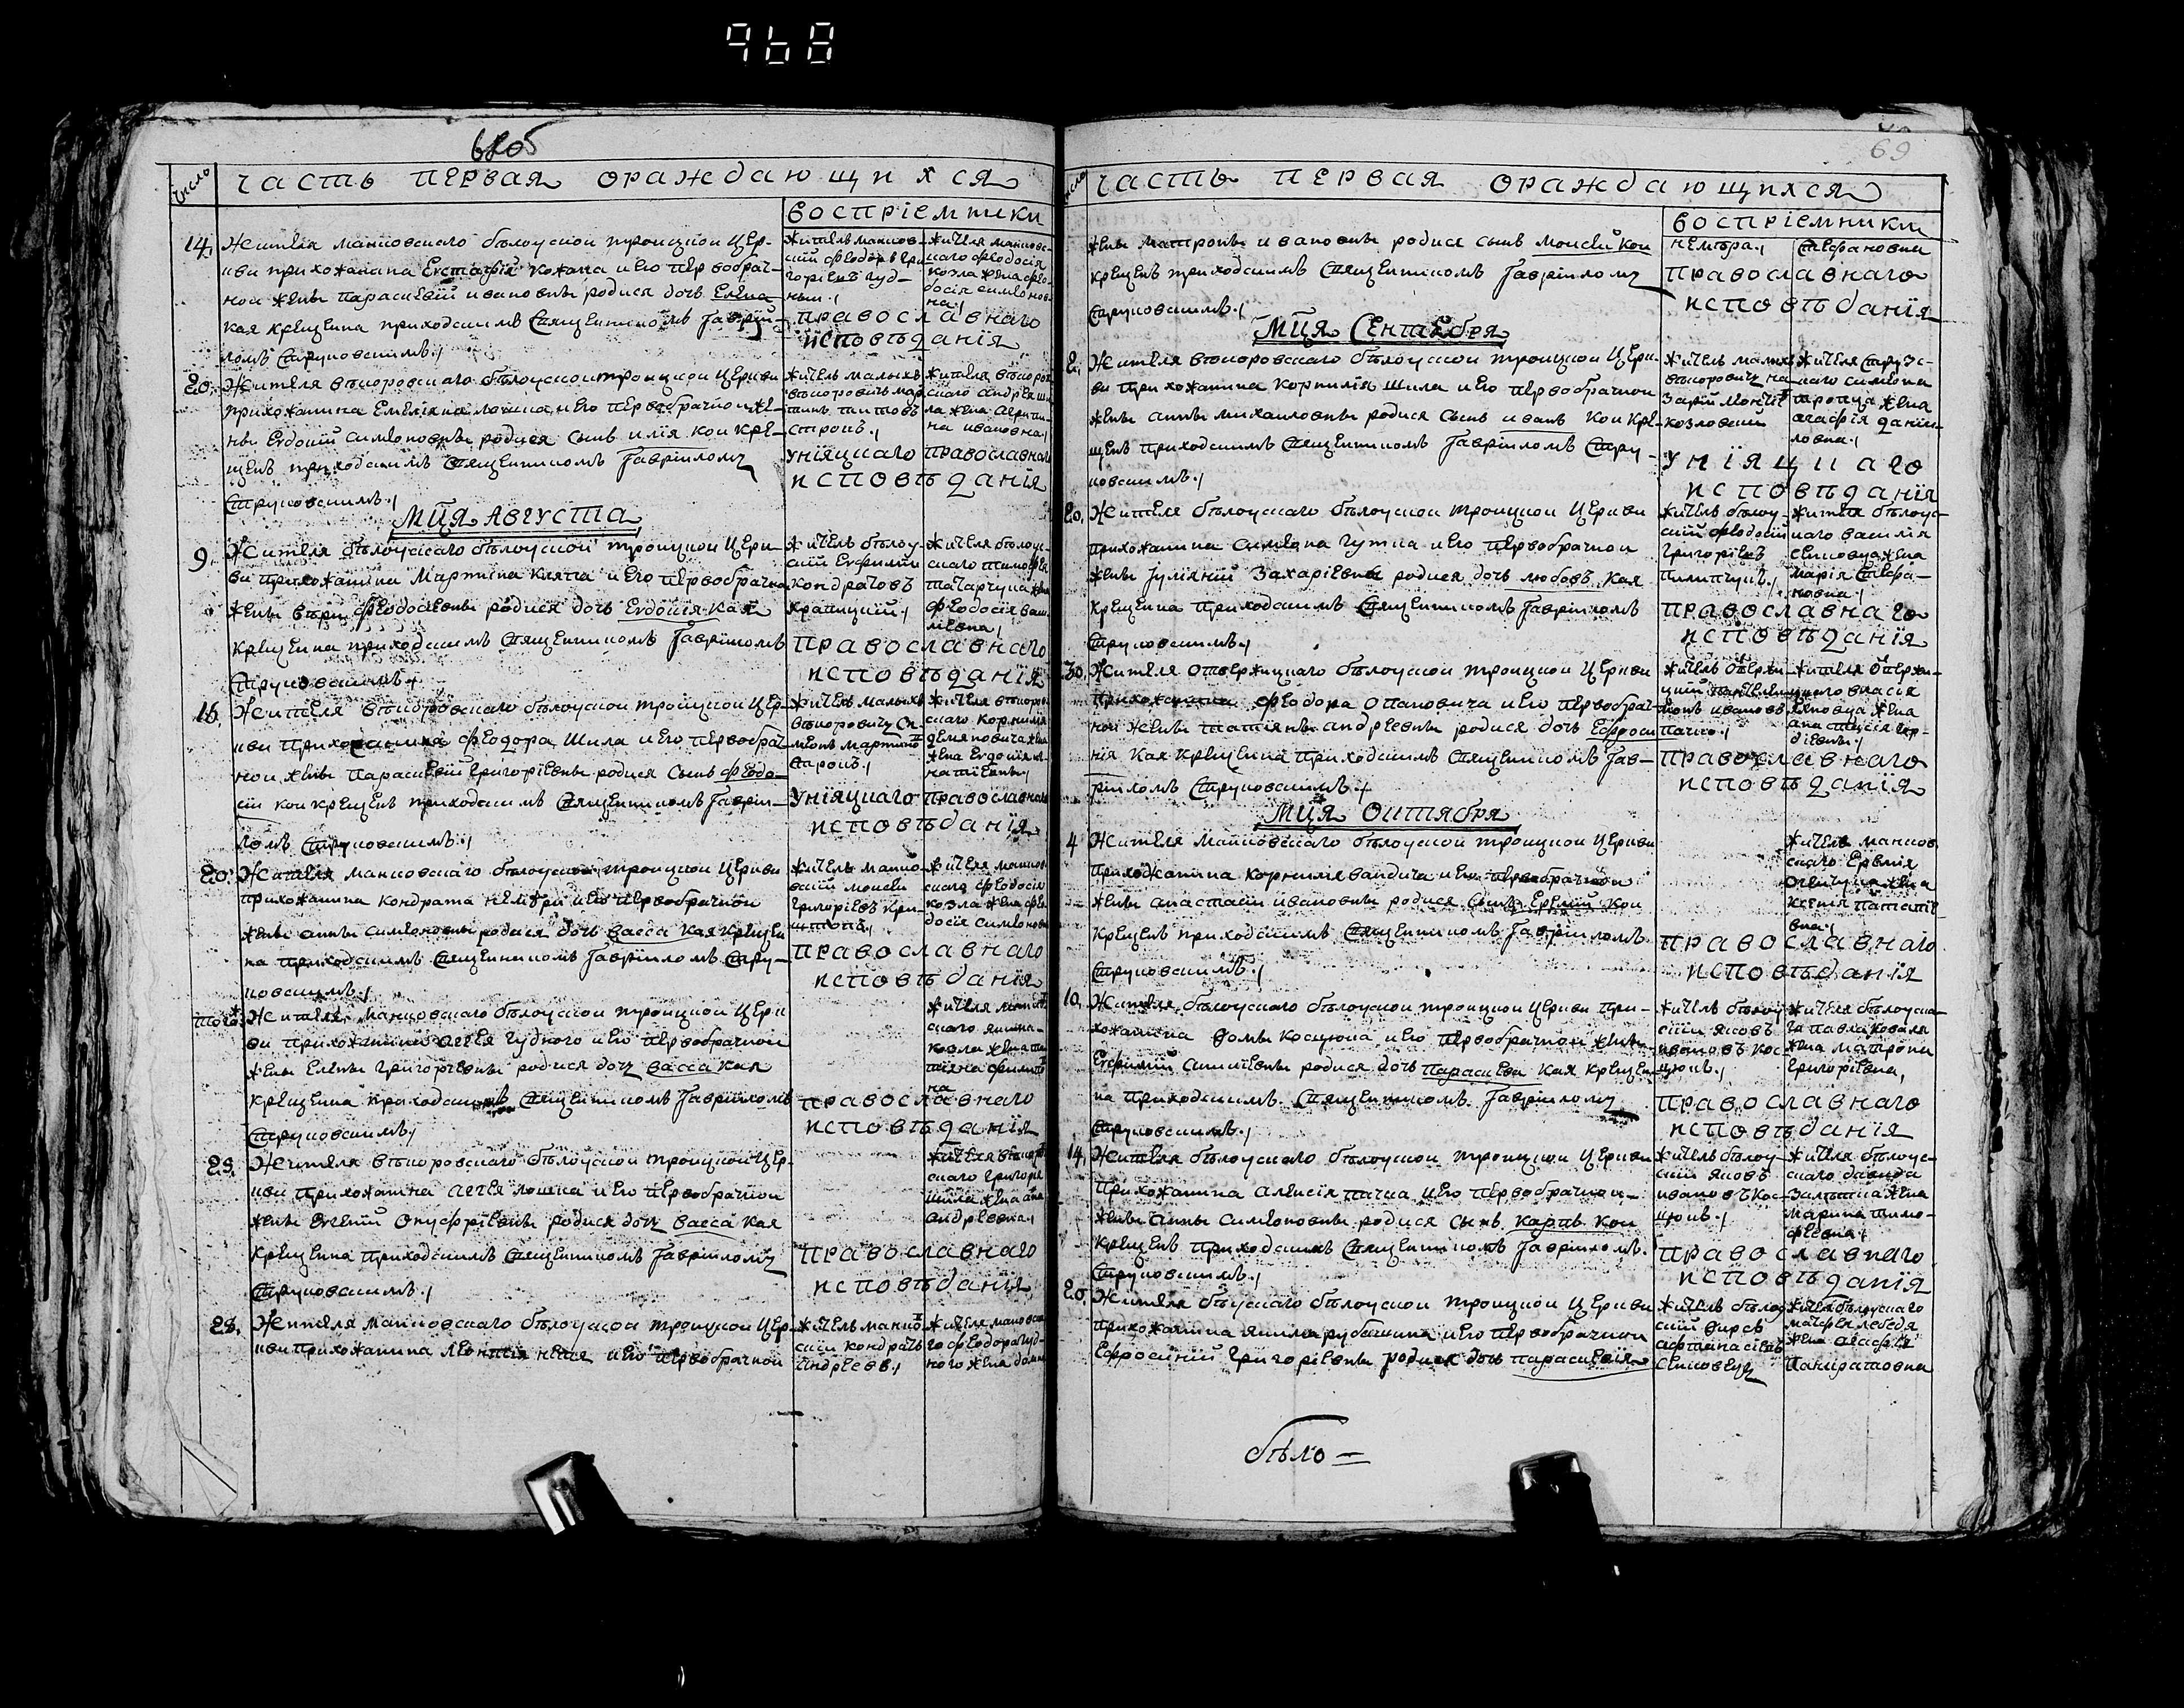 968
68об
Число
часть первая ораждающихся
восприемники
14. Жителя маниовскаго бѣлоуской троицкой цер-
кви прихожанина Евстафія кожана и его первобрач-
ной жены параскевіи ивановны родися дочь Елена
кая крещена приходскимъ Священникомъ Гавріи-
ломъ Струковскимъ.
житель маниов-
скій Феодоръ Гри
горіевъ гуд-
ный
жителя маниовс-
каго Феодосія
козла жена Фео-
досія симеонов-
на
православнаго
исповѣданія
20. Жителя вѣпоровскаго бѣлоуской троицкой церкви
прихожанина Емеліяна лошка и его первобрачной же-
ны Евдокіи симеоновны родися сынъ илія кои кре-
щенъ приходскимъ Священникомъ Гавріиломъ
Струковскимъ.
житель малыхъ
вѣпоровичъ мар
тинъ титовъ
старокъ.
жителя вѣпоров
скаго андрея ши
ла жена агрипи-
на ивановна
униацкаго православнаго
исповѣданія
Мца Августа
9. Жителя бѣлоускаго бѣлоуской троицкой церк-
ви прихожанина Мартина кляпа и его первобрачна
жены вѣри Феодосіевны родися дочь Евдокія кая
крещена приходскимъ Священникомъ Гавріиломъ
Струковскимъ
житель бѣлоу-
скій Евфимій
кондратовъ
крапицкій
жителя бѣлоус-
скаго тимофея
татарчука жена
Феодосія васи
ліевна
православнаго
исповѣданія
16. Жителя вѣпоровскаго бѣлоуской троицкой цер-
кви прихожанина Феодора Шила и его первобрач-
ной жены параскевіи григоріевны родися сынъ Феодо-
сій кои крещенъ приходскимъ Священникомъ Гавріи-
ломъ Струковскимъ.
житель малыхъ
вѣпоровичъ Си-
меонъ мартино
старокъ.
жителя вѣпоров
скаго корнилія
демяновича жена
жена Евдокія иг-
натіевна
униацкаго православнаго
исповѣданія
20. Жителя маниовскаго бѣлоуской троицкой церкви
прихожанина кондрата немѣри и его первобрачной
жены анны симеоновны родися дочь васса кая креще
на приходскимъ Священникомъ Гавріиломъ Стру-
ковскимъ.
житель манио-
вскій моисей
григоріевъ кри-
штопъ.
жителя маниов-
скаго Феодосія
козла жена Фео
досія симеоновн
православнаго
исповѣданія
того Жителя маниовскаго бѣлоуской троицкой церк
ви прихожанина агея гудного и его первобрачной
жены Елены григоріевны родися дочь васса кая
крещена приходскимъ Священникомъ Гавріиломъ
Струковскимъ
жителя манио
скаго якима
козла жена та
тіяна филипо
на
православнаго
исповѣданія
25. Жителя вѣпоровскаго бѣлоуской троицкой цер-
кви прихожанина агея лошка и его первобрачной
жены Евгеніи онуфріевны родися дочь васса кая
крещена приходскимъ Священникомъ Гавріиломъ
Струковскимъ.
жителя вѣпоро
скаго григорія
шила жена анна
андреевна
православнаго
исповѣданія
28. Жителя маниовскаго бѣлоуской троицкой цер-
кви прихожанина Леонтія и его первобрачной
житель манио
скій кондратъ
андреевъ
жителя маниовска
го Феодора гуд-
ного жена домни
69
Число
часть первая ораждающихся
восприемники
жены матроны ивановны родися сынъ моисей кои
крещенъ приходскимъ Священникомъ Гавріиломъ
Струковскимъ.
немѣра. Стефановна
православнаго
исповѣданія
Мца Сентебря
2. Жителя вѣпоровскаго бѣлоуской троицкой церк-
ви прихожанина корнилія шила и его первобрачной
жены анны михаиловны родися сынъ иванъ кои кре-
щенъ приходскимъ Священникомъ Гавріиломъ Стру-
ковскимъ.
житель малыхъ
вѣпоровичъ на
зарій
козловскій
жителя
каго симеона
троца жена
агафія дании-
ловна
униацкаго
исповѣданія
20. Жителя бѣлоускаго бѣлоуской троицкой церкви
прихожанина симеона гутка и его первобрачной
жены Іуліяніи Захаріевны родися дочь любовъ кая
крещена приходскимъ Священникомъ Гавріиломъ
Струковскимъ.
житель бѣлоу-
скій Феодосій
григоріевъ
пилипчукъ.
жителя бѣлоус-
каго василія
сеиковца жена
марія Стефа-
новна
православнаго
исповѣданія
30. Жителя отвержицкаго бѣлоуской троицкой церкви
прихожанина Феодора опановича и его первобрач-
ной жены татіяны андреевны родися дочь Ефроси
нія кая крещена приходскимъ Священникомъ Гав-
ріиломъ Струковскимъ
житель отвержи
цкій пантелеи
монъ ивановъ
пачко.
жителя отвержи-
цкаго власія
жена
анастасія
православнаго
исповѣданія
Мца Октября
4 Жителя маниовскаго бѣлоуской троицкой церкви
прихожанина корнилія бандича и его первобрачной
жены анастасіи ивановны родися сынъ Еремій кои
крещенъ приходскимъ Священникомъ Гавріиломъ
Струковскимъ.
житель маниов
скаго Еремія
жена
ксенія
вна
православнаго
исповѣданія
10. Жителя бѣлоускаго бѣлоуской троицкой церкви при-
хожанина фомы косцюка и его первобрачной жены
Евфиміи родися дочь параскева кая креще-
на приходскимъ Священникомъ Гавріиломъ
Струковскимъ.
житель бѣлоу
скій яковъ
ивановъ кос-
цюкъ.
жителя бѣлоуска-
го павла коваля
жена матрона
григоріевна
православнаго
исповѣданія
14 Жителя бѣлоускаго бѣлоуской троицкой церкви
прихожанина алексія пачка и его первобрачной
жены анны симеоновны родися сынъ карпъ кои
крещенъ приходскимъ Священникомъ Гавріиломъ.
Струковскимъ.
житель бѣлоу-
скій яковъ
ивановъ кос-
цюкъ.
жителя бѣлоус-
скаго давида
жена
марина тимо-
феевна
православнаго
исповѣданія
20. Жителя бѣускаго бѣлоуской троицкой церкви
прихожанина якима рубашика и его первобрачной
Ефросиніи григоріевны родися дочь параскевія
житель бѣлоу
скій фирсъ
афанасіевъ
сеиковецъ
жителя бѣлоускаго
матфея лебедя
жена агафія
панкратовна
бѣло=